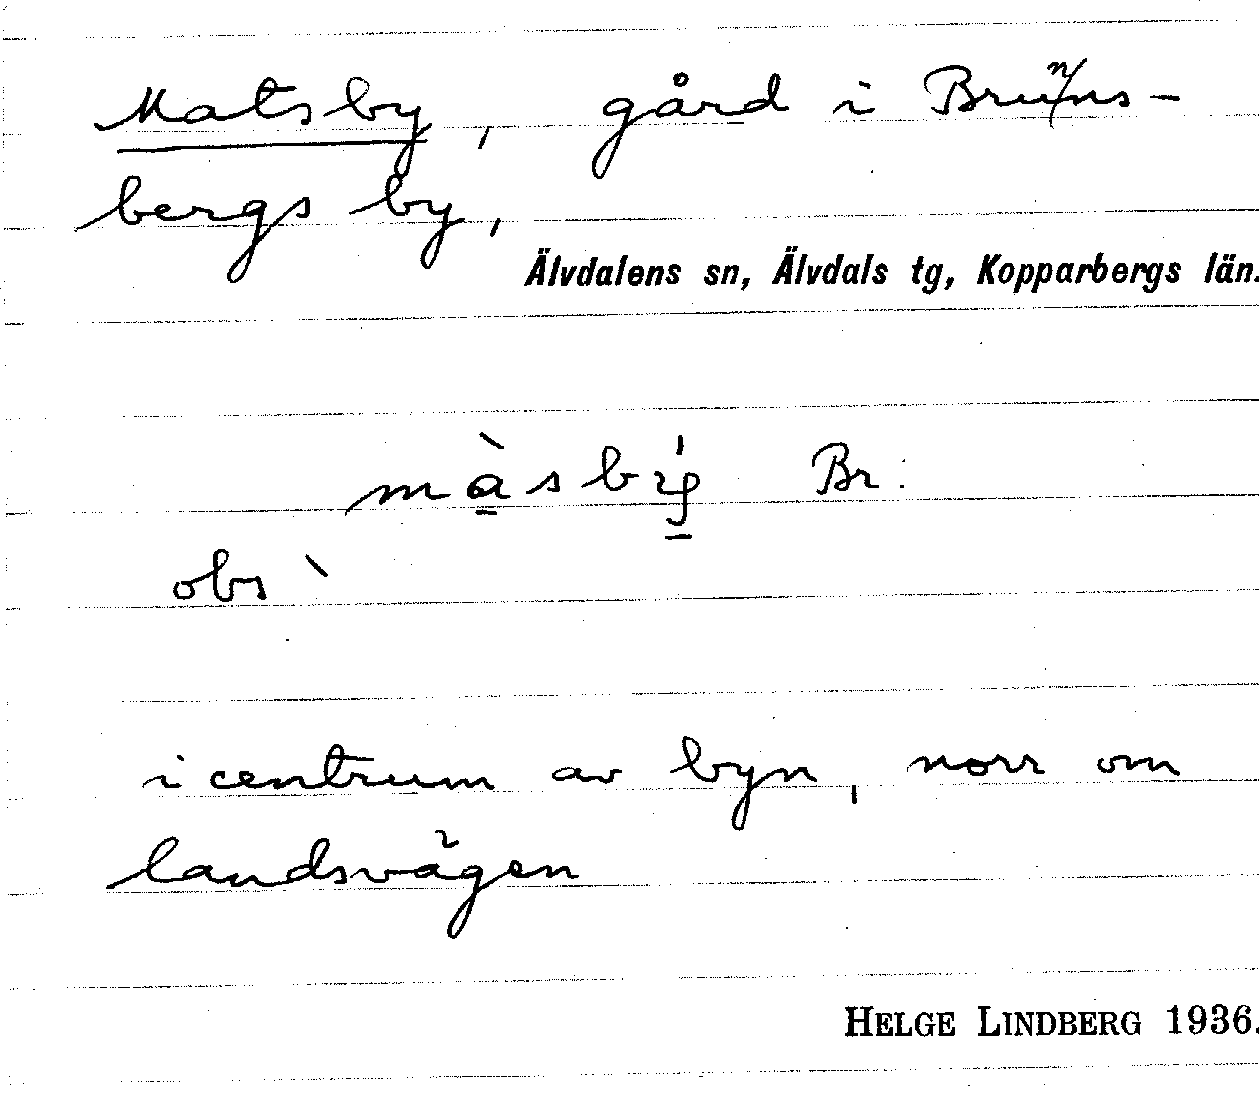 Matsby, gård i Brunns-
bergs by,
Älvdalens sn, Älvdals tg, Kopparbergs län.
Br.
obs `
i centrum av byn, norr om
landsvägen
HELGE LINDBERG 1936.